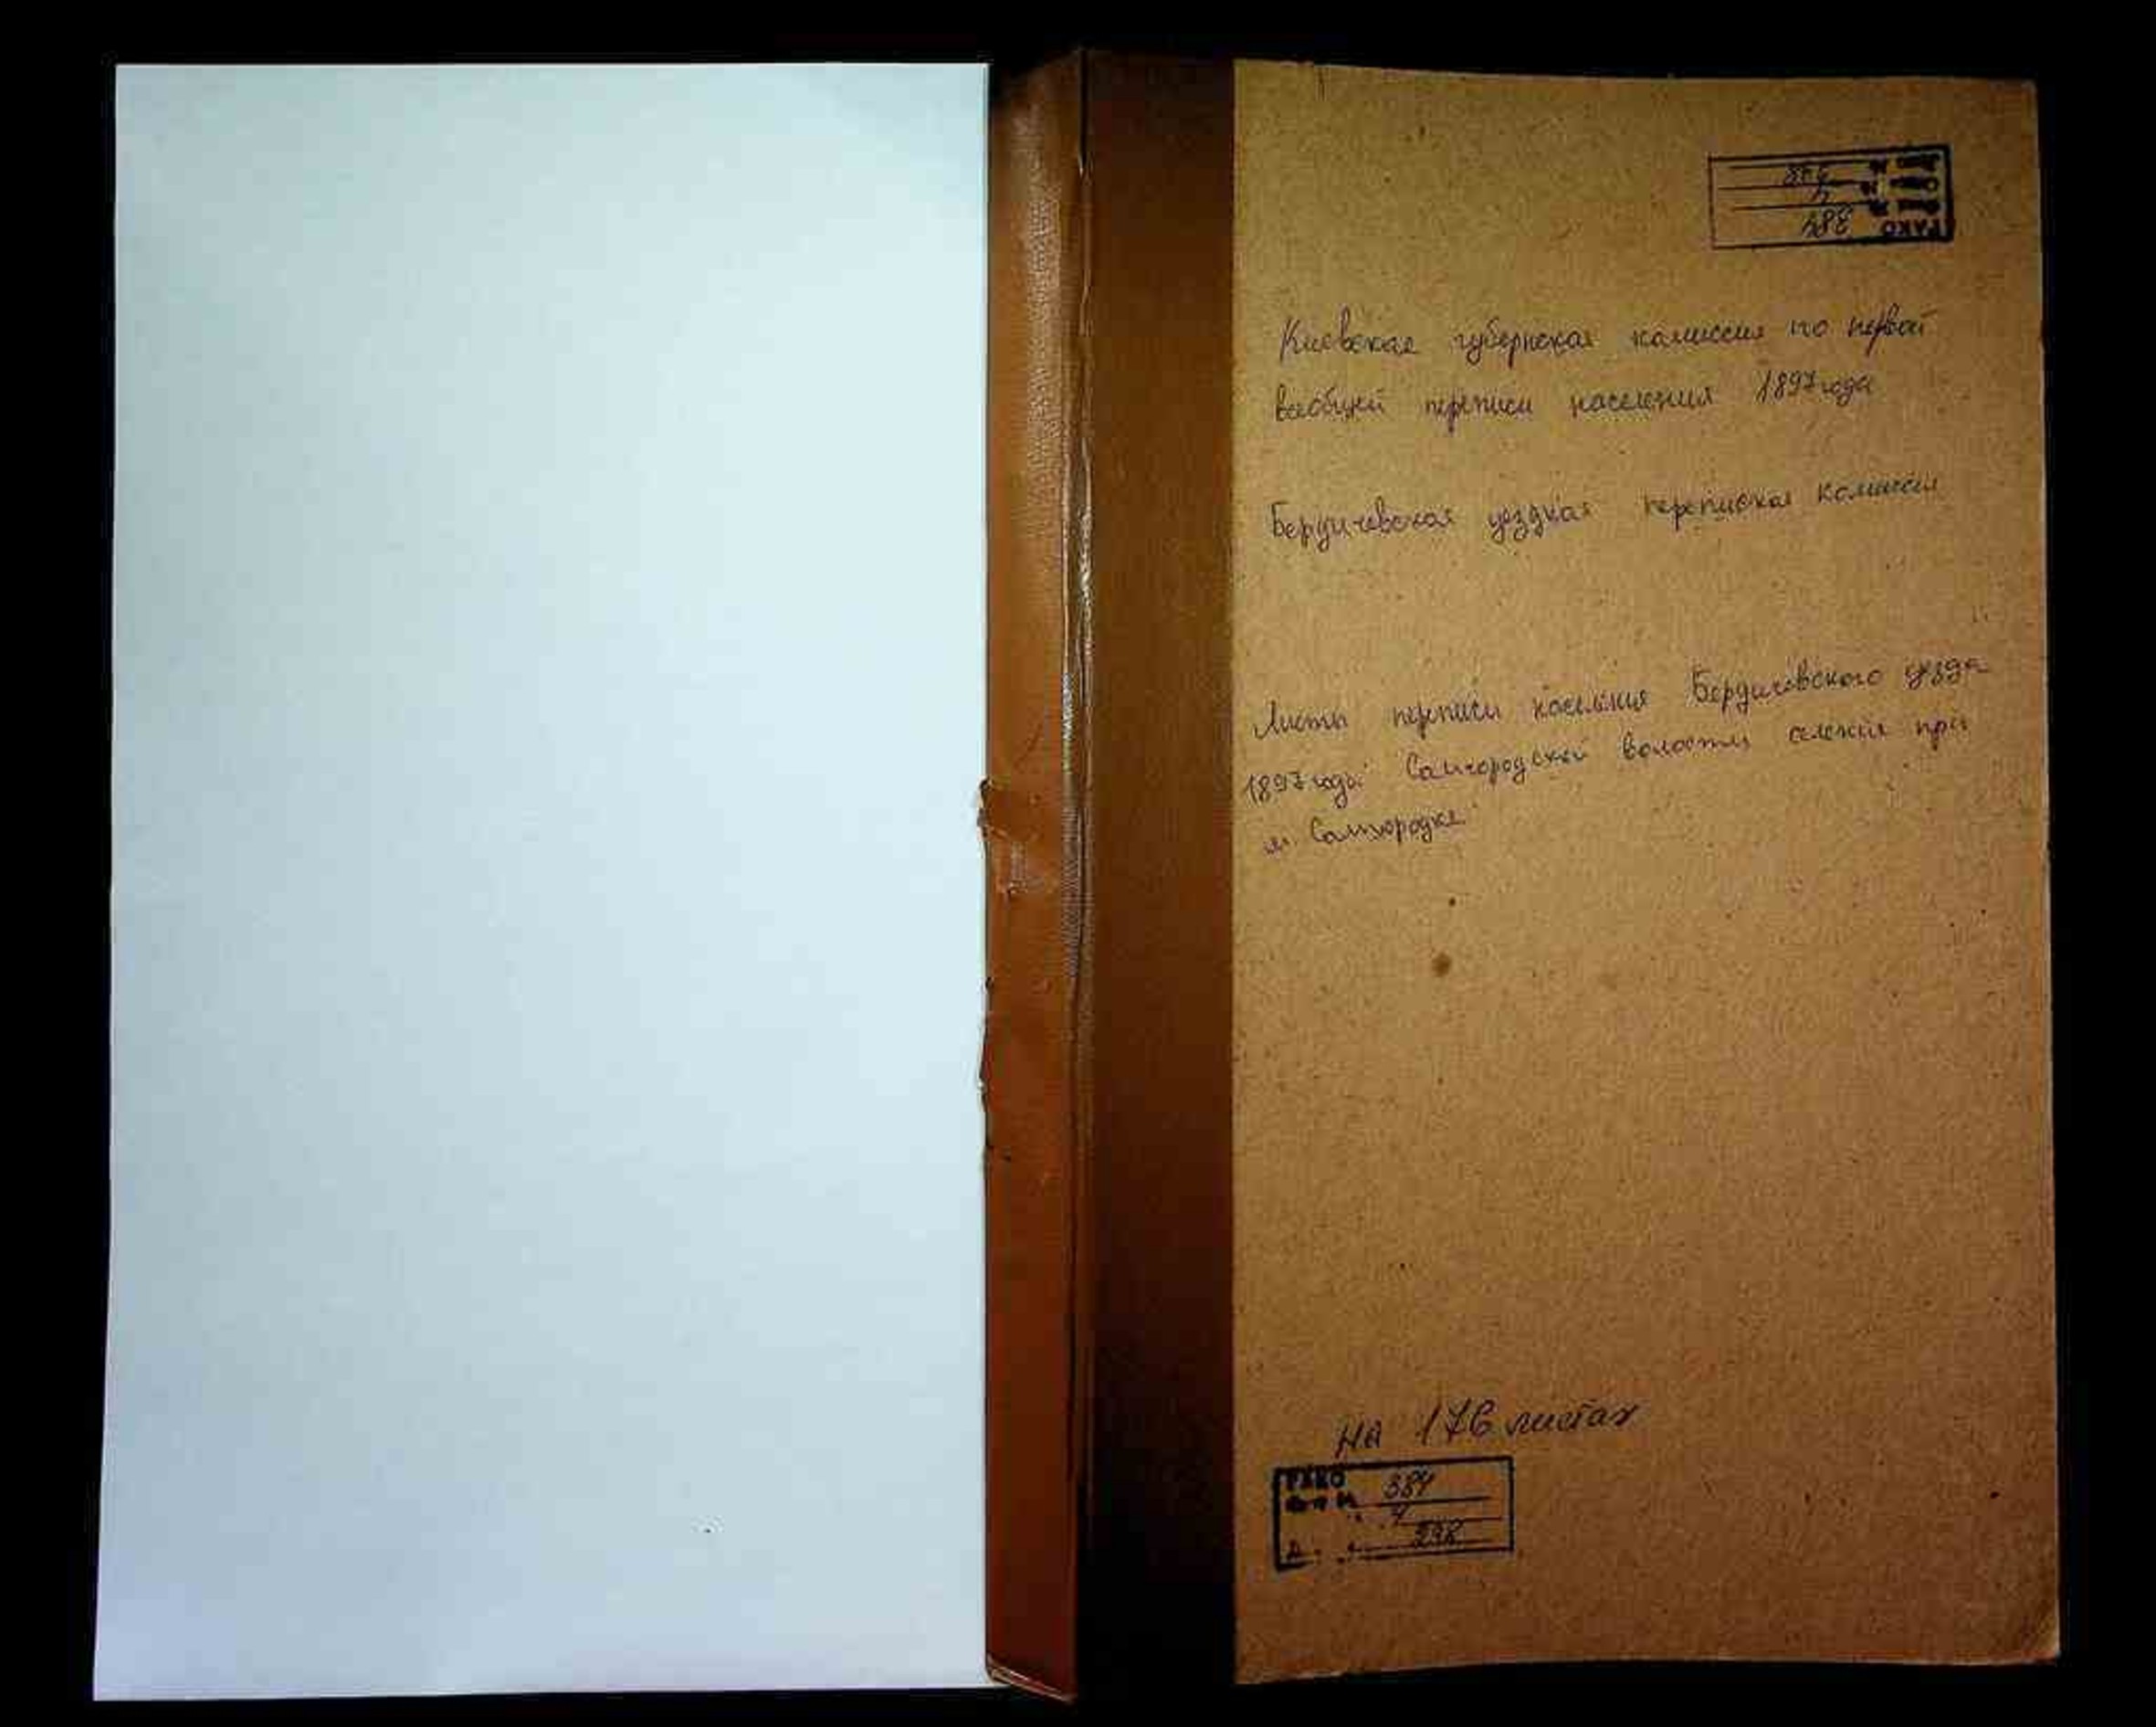 Киевская губернская комиссия по первой
всеобщей переписи населения 1897 года
Бердичевская уездная переписная комиссия
Листы переписи населения Бердичевского уезда
1897 года Самгородской волости селения при
м. Самгородке
на 176 листах
РАКО
384
4